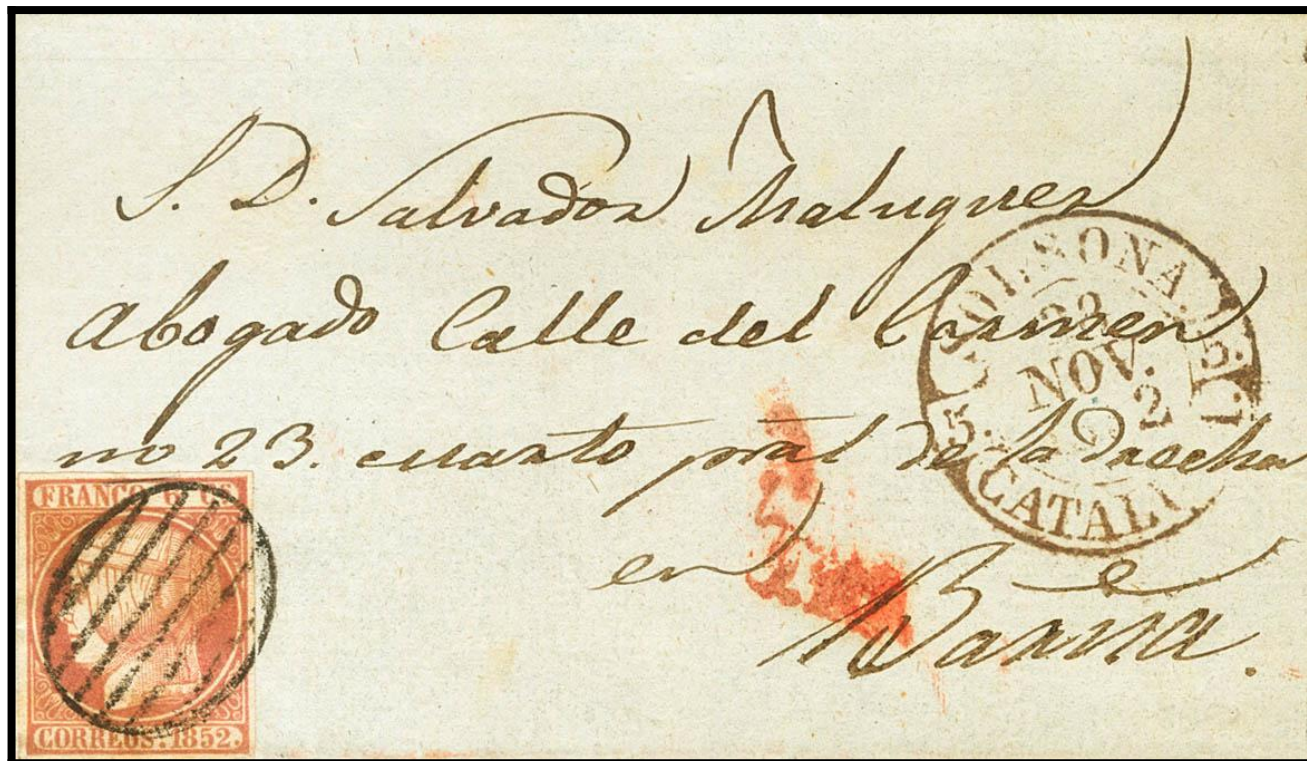 S. D. Salvador Maluquer
Abogado Calle del Carmen
no 23. cuarto pral de la derecha
en
Barna.
SOLSONA.
22
NOV.
1852
CATALUÑA
FRANCO 6 CS
CORREOS. 1852.